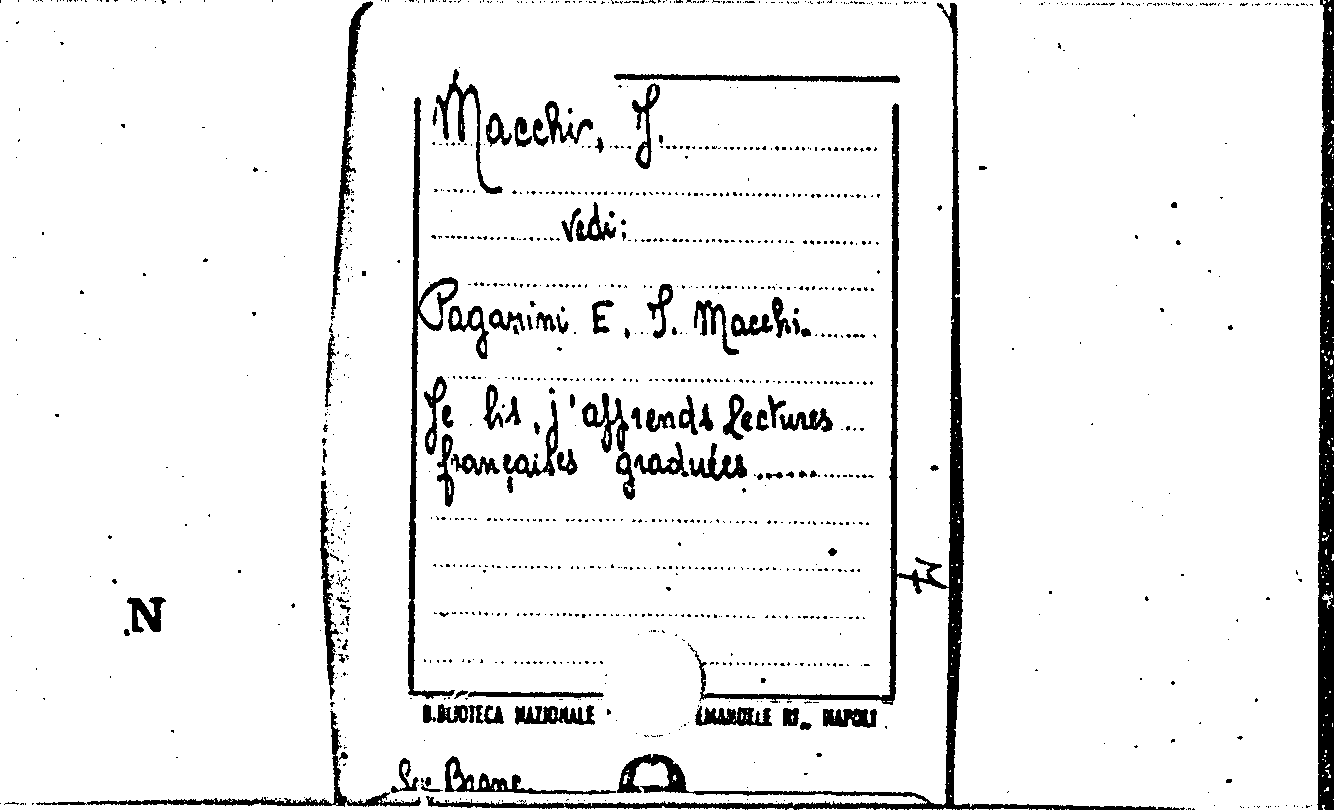 Macchi, J.
vedi:
Paganini E, J. Macchi.
Je lis, j'apprends Lectures...
françaises graduées......
N
BIBLIOTECA NAZIONALE EMANUELE III NAPOLI